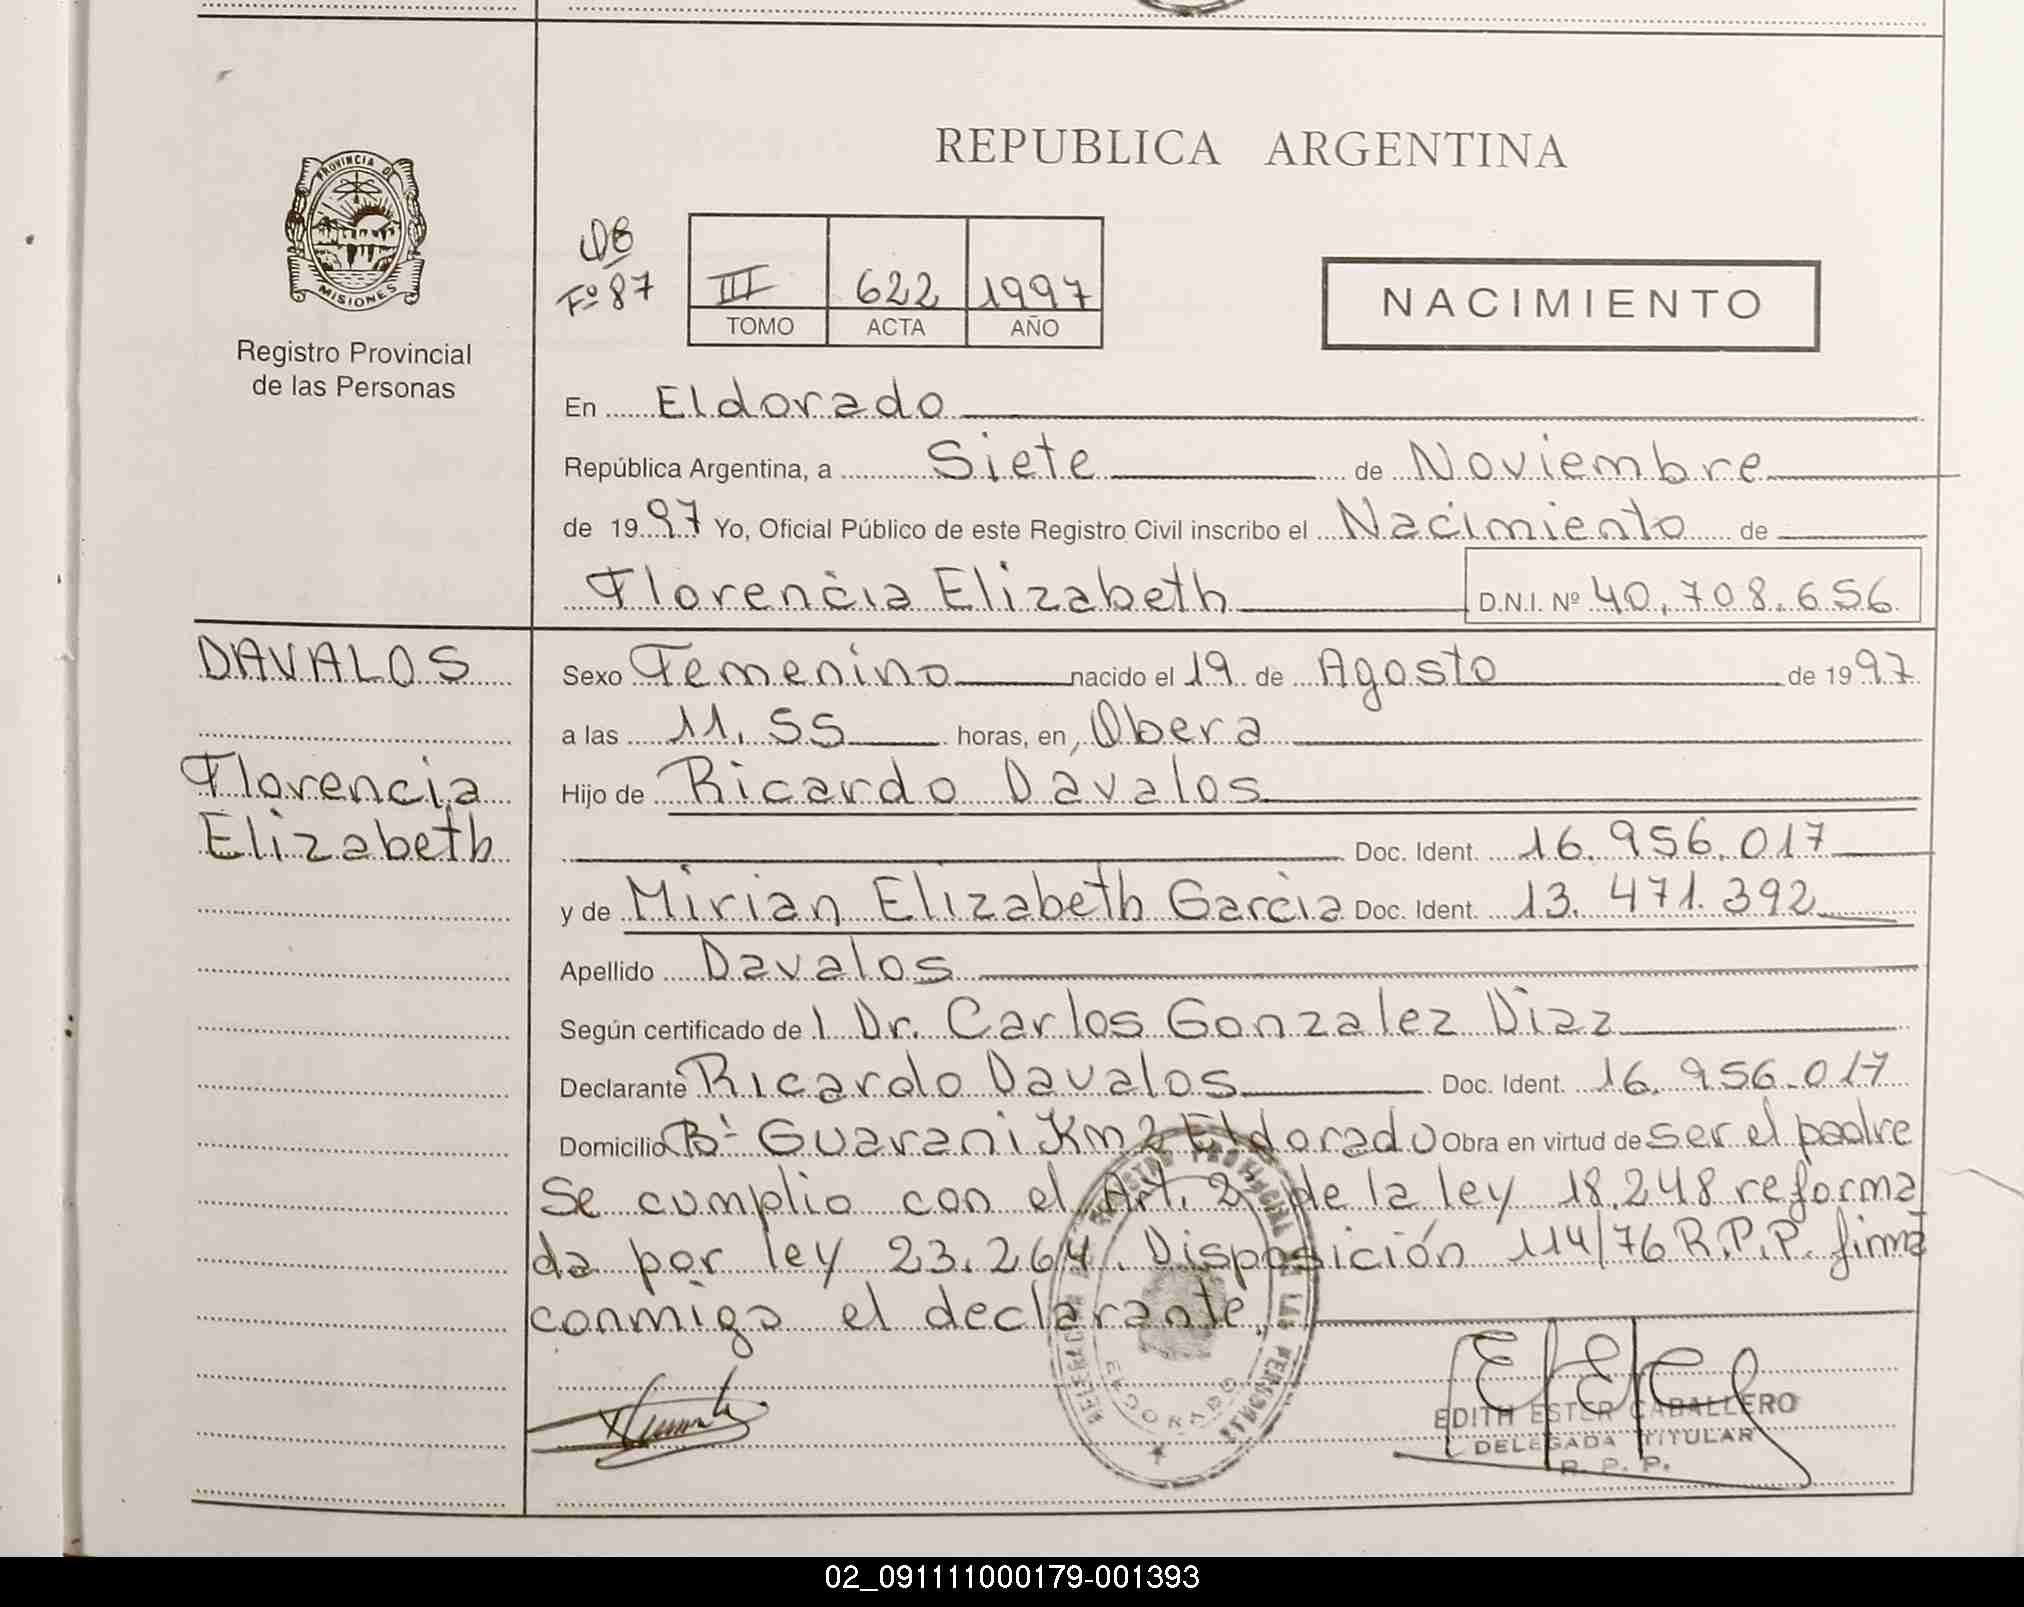 PROVINCIA DE
MISIONES
Registro Provincial
de las Personas
REPUBLICA ARGENTINA
Fº 87
III 622 1997
TOMO ACTA AÑO
NACIMIENTO
En Eldorado
República Argentina, a Siete de Noviembre
de 1997 Yo, Oficial Público de este Registro Civil inscribo el Nacimiento de
Florencia Elizabeth D.N.I. Nº 40.708.656
DAVALOS
Florencia
Elizabeth
Sexo Femenino nacido el 19 de Agosto de 1997
a las 11.55 horas, en Obera
Hijo de Ricardo Davalos
Doc. Ident. 16.956.017
y de Mirian Elizabeth Garcia Doc. Ident. 13.471.392
Apellido Davalos
Según certificado de l Dr. Carlos Gonzalez Diaz
Declarante Ricardo Davalos Doc. Ident. 16.956.017
Domicilio Bº Guarani Km 2 Eldorado Obra en virtud de ser el padre
Se cumplio con el Art. 2 de la ley 18.248 reforma
da por ley 23.264. Disposición 114/76 R.P.P. firma
conmigo el declarante.
EDITH ESTER CABALLERO
DELEGADA TITULAR
R. P. P.
02_091111000179-001393